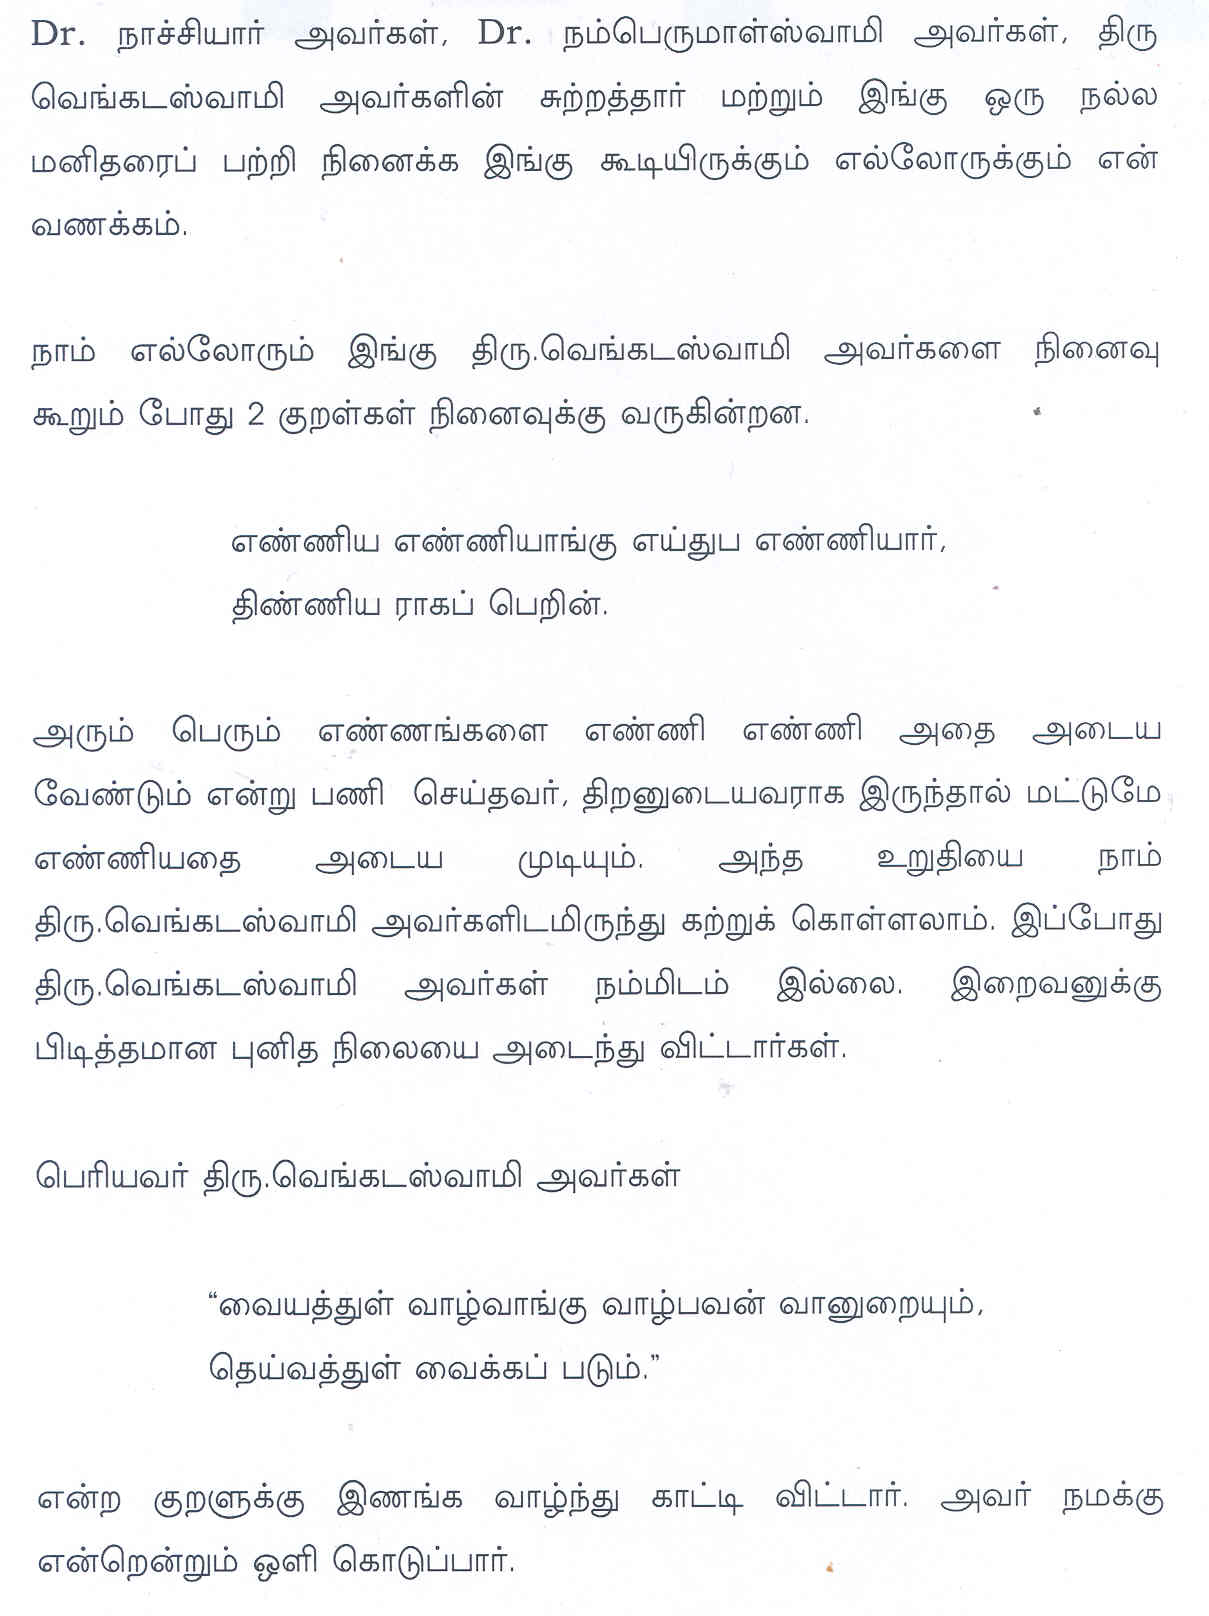 Dr. நாச்சியார் அவர்கள், Dr. நம்பெருமாள்ஸ்வாமி அவர்கள், திரு
வெங்கடஸ்வாமி அவர்களின் சுற்றத்தார் மற்றும் இங்கு ஒரு நல்ல
மனிதரைப் பற்றி நினைக்க இங்கு கூடியிருக்கும் எல்லோருக்கும் என்
வணக்கம்.
நாம் எல்லோரும் இங்கு திரு.வெங்கடஸ்வாமி அவர்களை நினைவு
கூறும் போது 2 குறள்கள் நினைவுக்கு வருகின்றன.
எண்ணிய எண்ணியாங்கு எய்துப எண்ணியார்,
திண்ணிய ராகப் பெறின்.
அரும் பெரும் எண்ணங்களை எண்ணி எண்ணி அதை அடைய
வேண்டும் என்று பணி செய்தவர், திறனுடையவராக இருந்தால் மட்டுமே
எண்ணியதை அடைய முடியும். அந்த உறுதியை நாம்
திரு.வெங்கடஸ்வாமி அவர்களிடமிருந்து கற்றுக் கொள்ளலாம். இப்போது
திரு.வெங்கடஸ்வாமி அவர்கள் நம்மிடம் இல்லை. இறைவனுக்கு
பிடித்தமான புனித நிலையை அடைந்து விட்டார்கள்.
பெரியவர் திரு.வெங்கடஸ்வாமி அவர்கள்
“வையத்துள் வாழ்வாங்கு வாழ்பவன் வானுறையும்,
தெய்வத்துள் வைக்கப் படும்.”
என்ற குறளுக்கு இணங்க வாழ்ந்து காட்டி விட்டார். அவர் நமக்கு
என்றென்றும் ஒளி கொடுப்பார்.